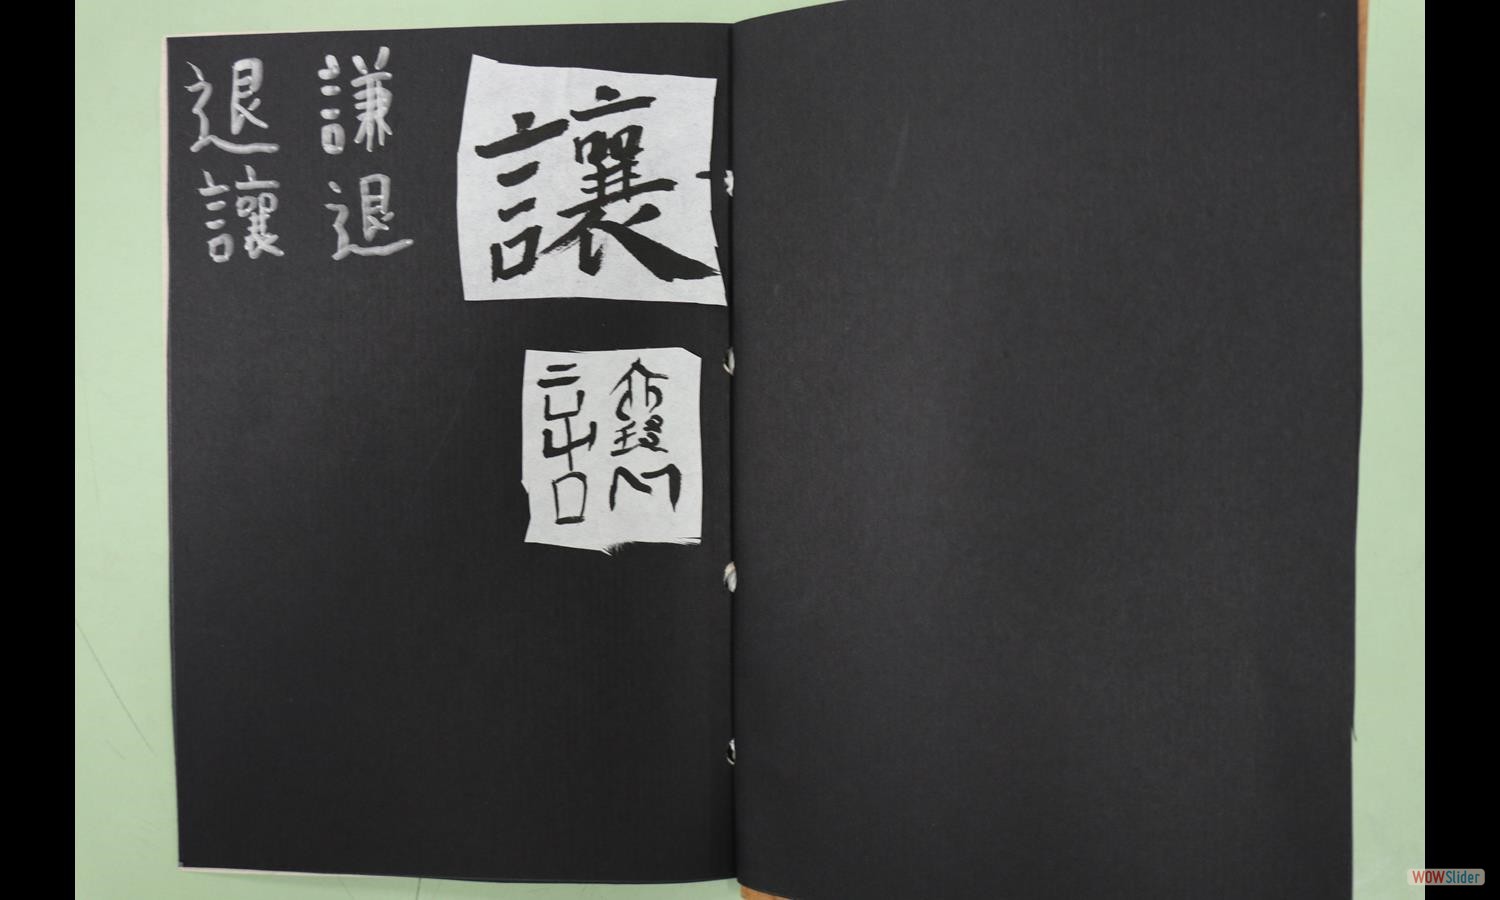 讓
讓
謙退
退讓
WOWSlider